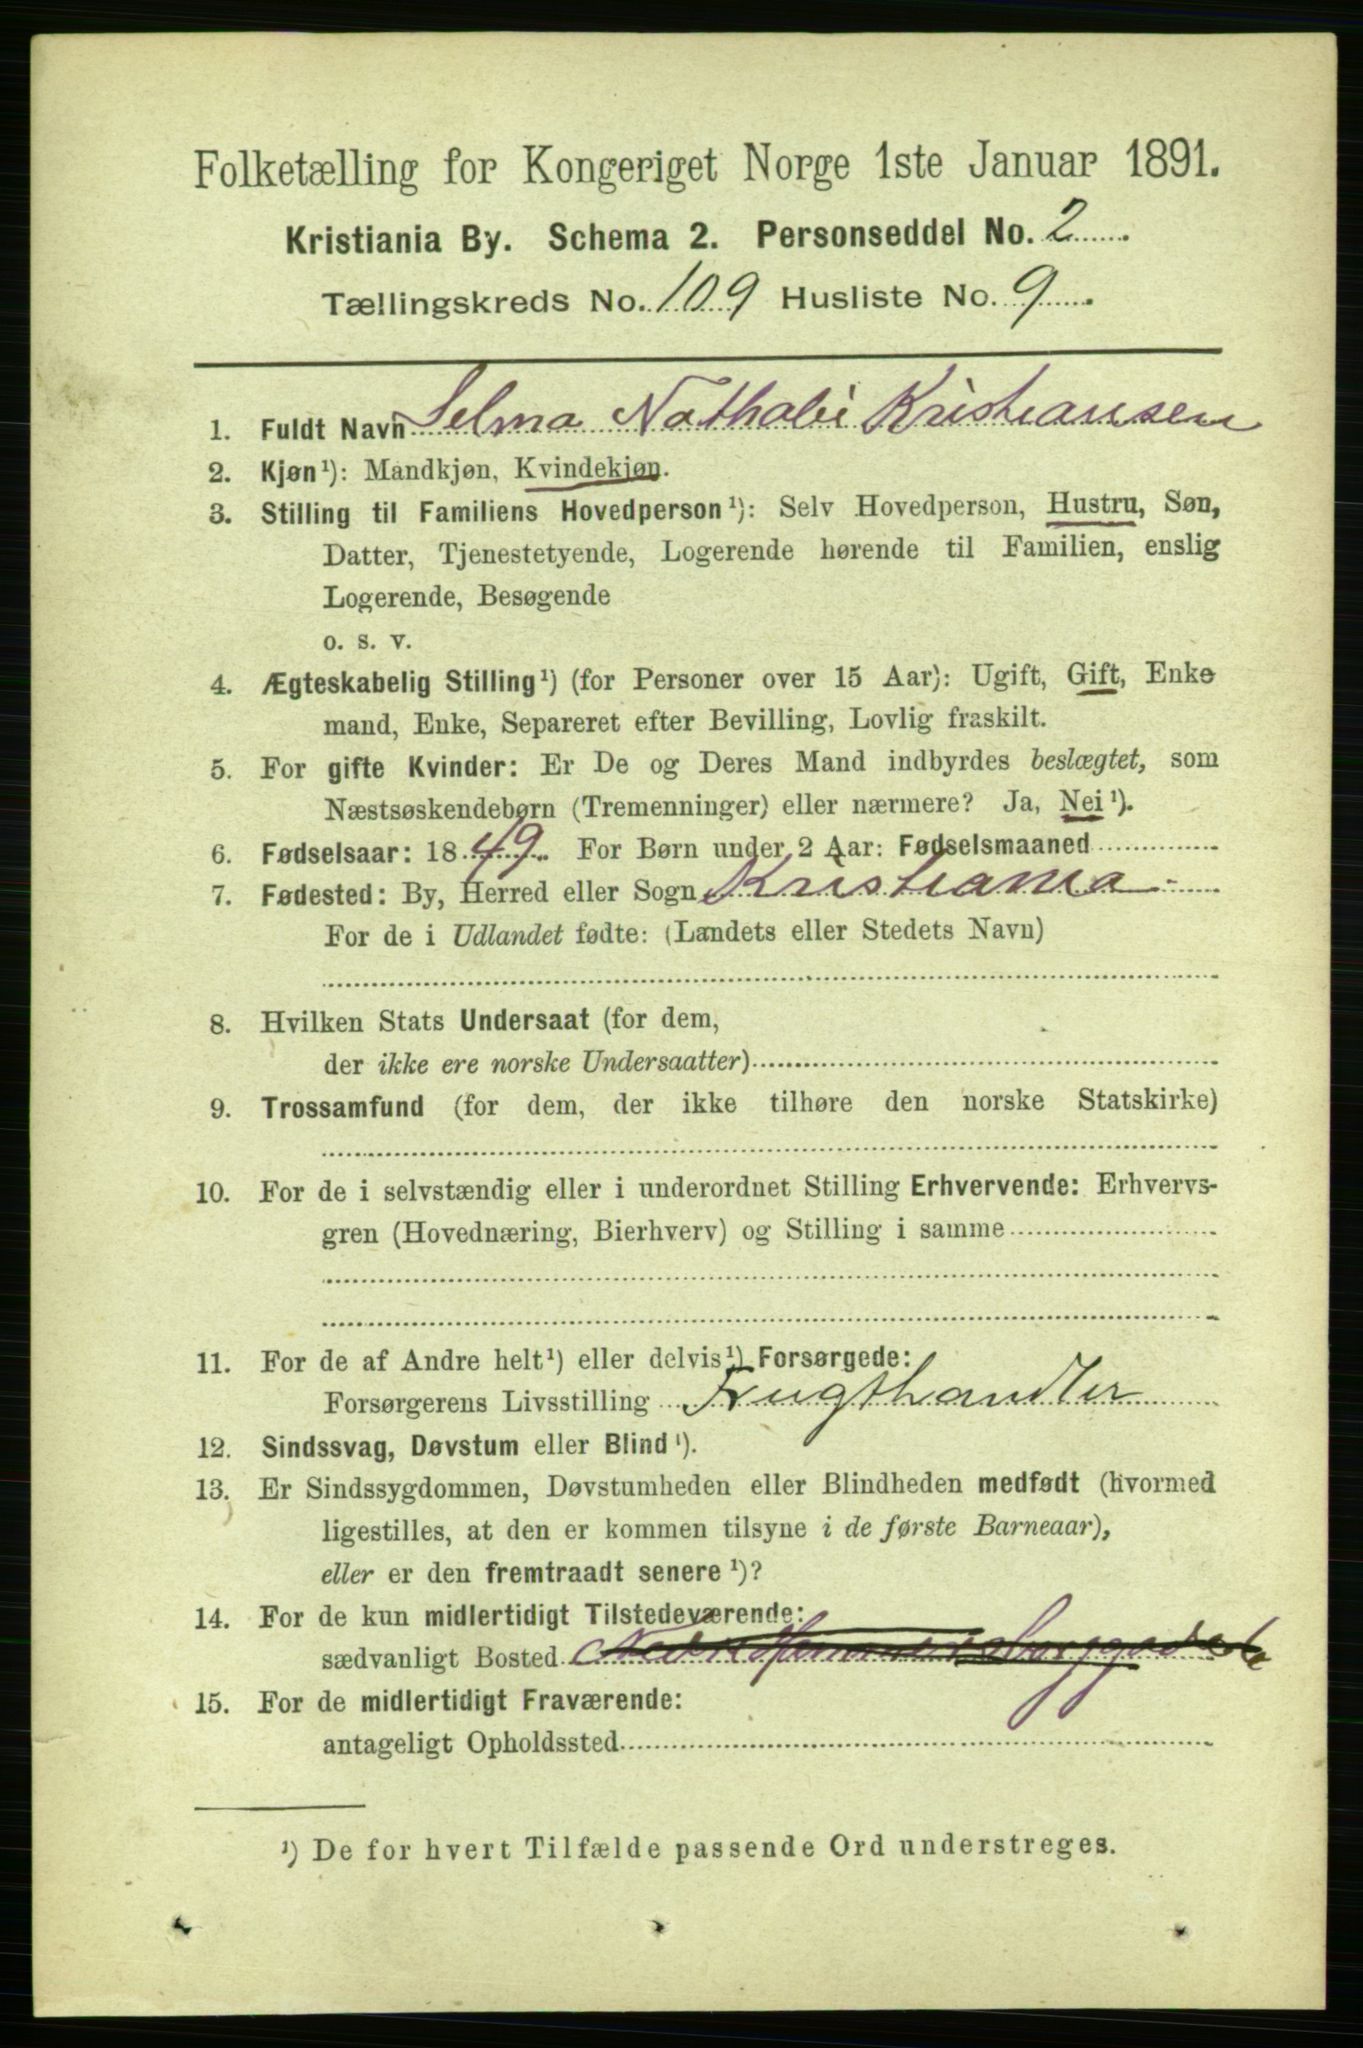 Folketælling for Kongeriget Norge 1ste Januar 1891.
Kristiania By. Schema 2. Personseddel No. 2
Tællingskreds No. 109 Husliste No. 9
1. Fuldt Navn Selma Nathalie Kristiansen
2. Kjøn¹): Mandkjøn, Kvindekjøn.
3. Stilling til Familiens Hovedperson¹): Selv Hovedperson, Hustru, Søn,
Datter, Tjenestetyende, Logerende hørende til Familien, enslig
Logerende, Besøgende
o. s. v.
4. Ægteskabelig Stilling¹) (for Personer over 15 Aar): Ugift, Gift, Enke
mand, Enke, Separeret efter Bevilling, Lovlig fraskilt.
5. For gifte Kvinder: Er De og Deres Mand indbyrdes beslægtet, som
Næstsøskendebørn (Tremenninger) eller nærmere? Ja, Nei¹).
6. Fødselsaar: 1849. For Børn under 2 Aar: Fødselsmaaned
7. Fødested: By, Herred eller Sogn Kristiania
For de i Udlandet fødte: (Landets eller Stedets Navn)
8. Hvilken Stats Undersaat (for dem,
der ikke ere norske Undersaatter)
9. Trossamfund (for dem, der ikke tilhøre den norske Statskirke)
10. For de i selvstændig eller i underordnet Stilling Erhvervende: Erhvervs-
gren (Hovednæring, Bierhverv) og Stilling i samme
11. For de af Andre helt¹) eller delvis¹) Forsørgede:
Forsørgerens Livsstilling Frugthandler
12. Sindssvag, Døvstum eller Blind¹).
13. Er Sindssygdommen, Døvstumheden eller Blindheden medfødt (hvormed
ligestilles, at den er kommen tilsyne i de første Barneaar),
eller er den fremtraadt senere¹)?
14. For de kun midlertidigt Tilstedeværende:
sædvanligt Bosted
15. For de midlertidigt Fraværende:
antageligt Opholdssted
¹) De for hvert Tilfælde passende Ord understreges.